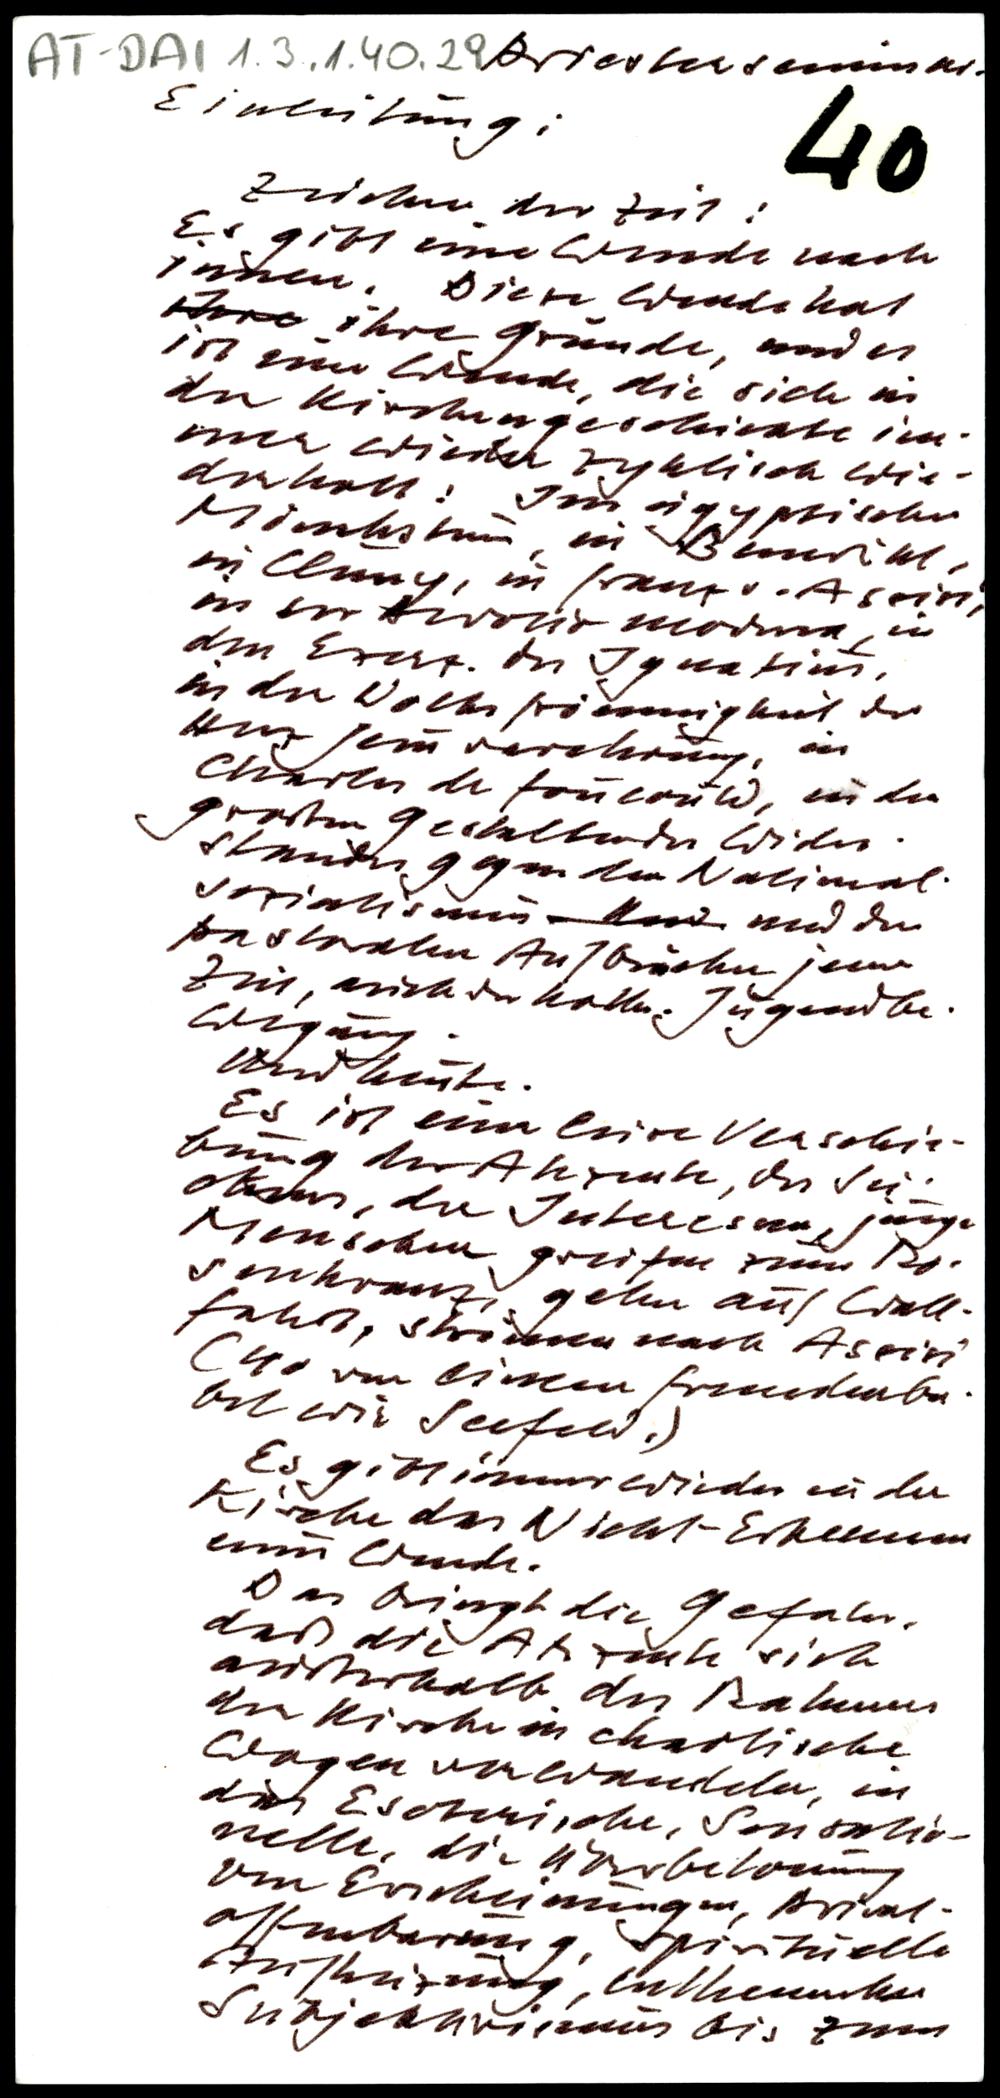 AT-DAI 1.3.1.40.29 Priesterseminar
Einleitung:
40
Zeichen der Zeit:
Es gibt eine Wende nach
innen. Diese Wende hat
ihre ihre Gründe, und es
ist eine Wende, die sich in
der Kirchengeschichte im-
mer wieder zyklisch wie-
derholt: Im ägyptischen
Mönchstum, in Benedikt,
in Cluny, in Franz v. Assisi,
in der Devotio moderna, in
den Exerz. des Ignatius,
in der Volksfrömmigkeit der
Herz Jesu Verehrung, in
Charles de Foucauld, in den
großen Gestalten des Wider-
standes gegen den National-
sozialismus und den
pastoralen Aufbrüchen jener
Zeit, auch der kath. Jugendbe-
wegung.
Und heute.
Es ist eine leise Verschie-
bung der Akzente, des
der Interessen, junge
Menschen greifen zum Ro-
senkranz, gehen auf Wall-
fahrt, strömen nach Assisi
(40 von einem Fremdenbe-
wie Seefeld.)
Es gibt immer wieder in der
Kirche das Nicht-Erkennen
einer Wende.
Das bringt die Gefahr,
daß die Akzente sich
außerhalb des Rahmens
der Kirche in chaotische
Wogen verwandeln, in
das Esoterische, Sensatio-
nelle, die Überbetonung
von Erscheinungen, Privat-
offenbarung, spirituelle
Aufheizung,
Subjektivismus bis zum